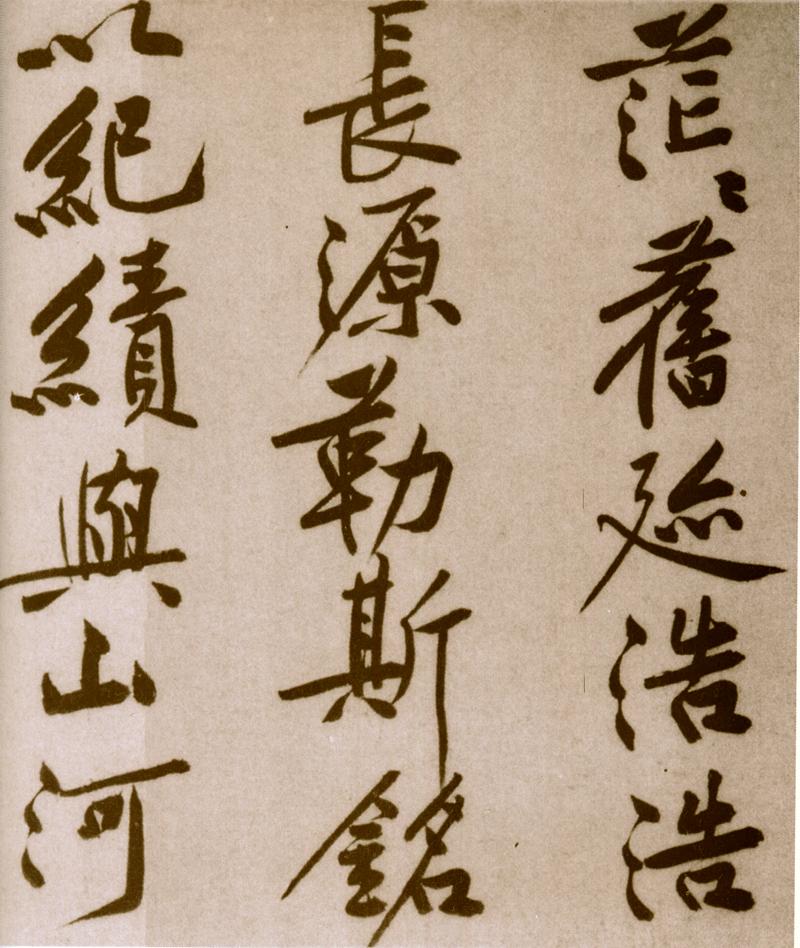 茫〻舊迹浩浩
長源勒斯銘
以紀績與山河